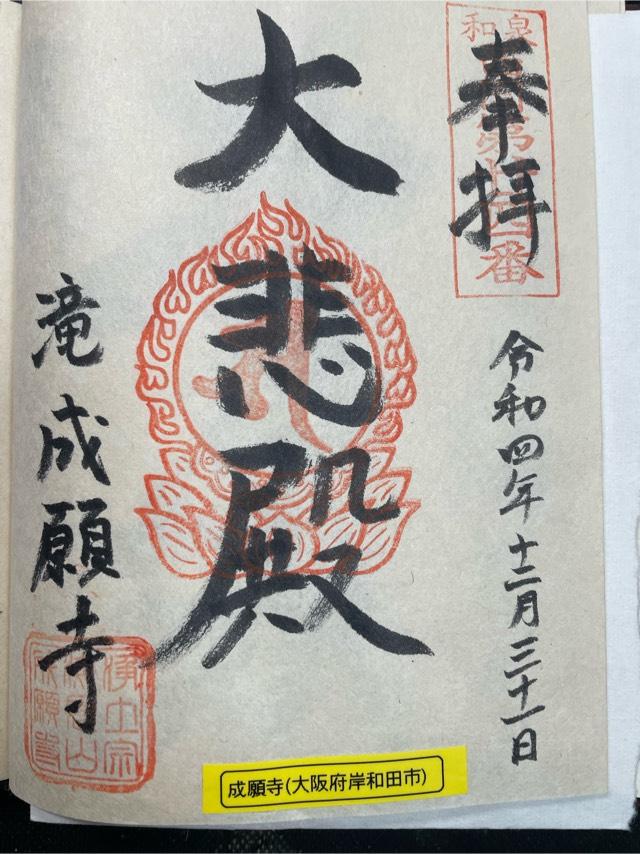 奉拝
令和四年十二月三十一日
大悲殿
滝成願寺
成願寺(大阪府岸和田市)